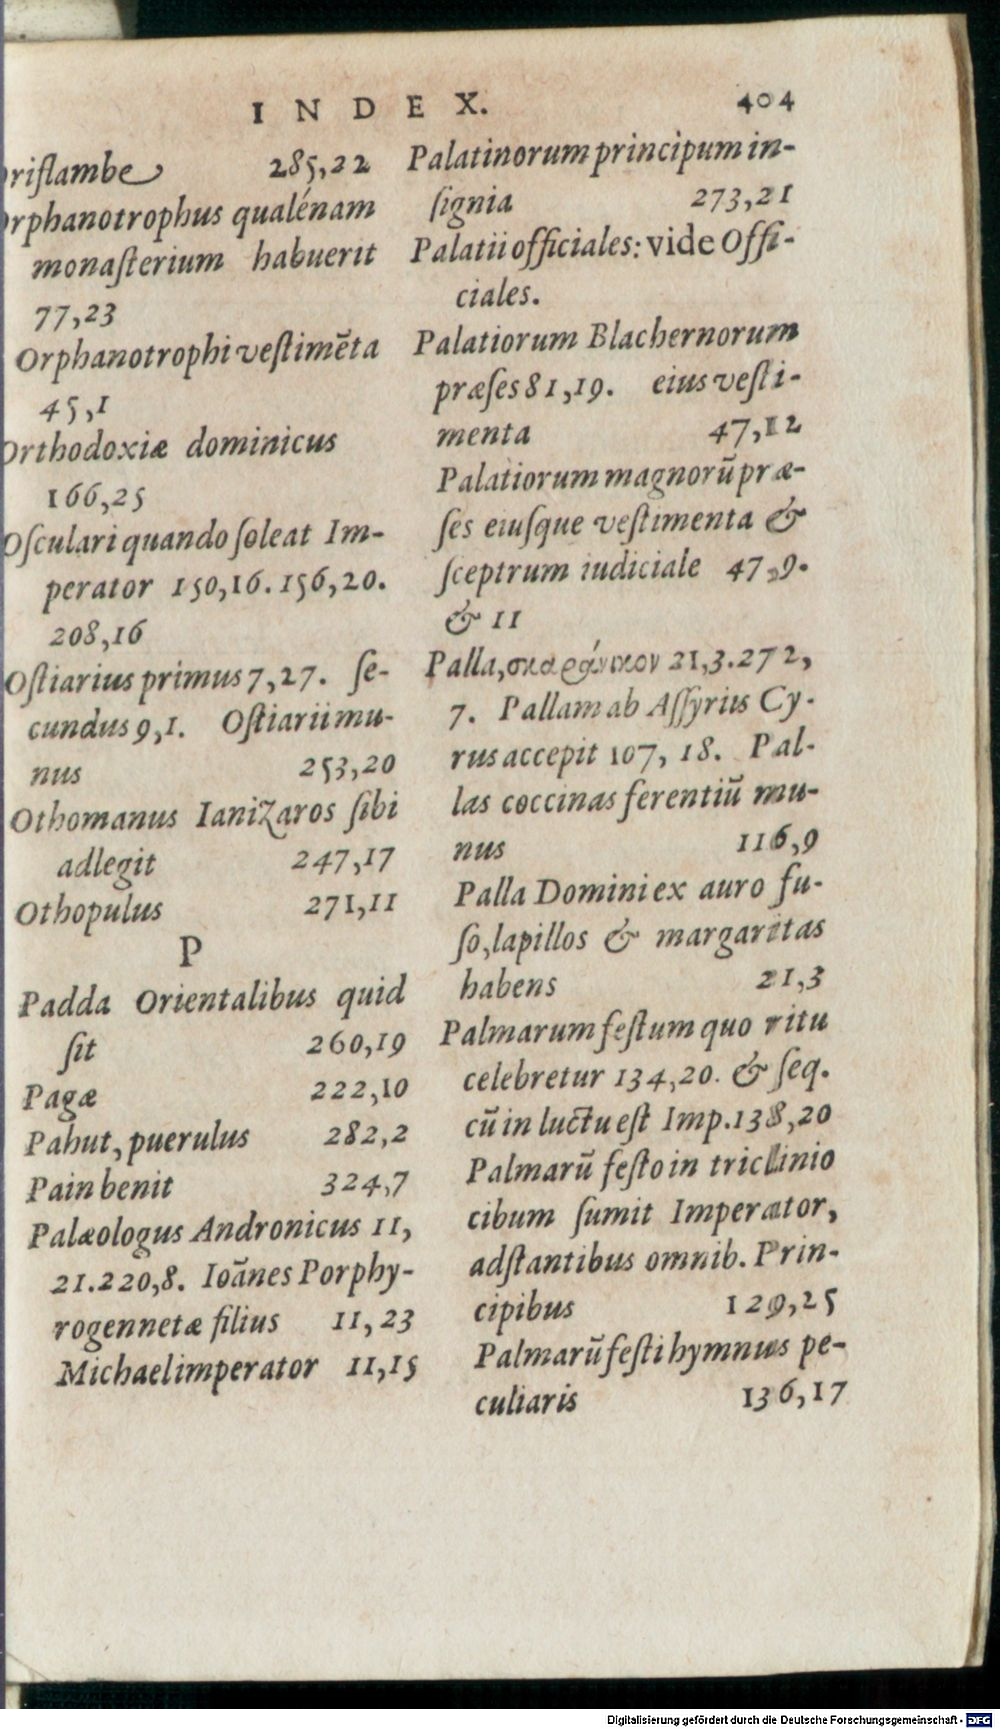 INDEX. 404
Oriflambe 285,22
Orphanotrophus qualénam
monaſterium habuerit
77,23
Orphanotrophi veſtimẽta
45,1
Orthodoxiæ dominicus
166,25
Oſculari quando ſoleat Im-
perator 150,16. 156,20.
208,16
Oſtiarius primus 7,27. ſe-
cundus 9,1. Oſtiarii mu-
nus 253,20
Othomanus Ianizaros ſibi
adlegit 247,17
Othopulus 271,11
P
Padda Orientalibus quid
ſit 260,19
Pagæ 222,10
Pahut, puerulus 282,2
Pain benit 324,7
Palæologus Andronicus 11,
21. 220,8. Ioãnes Porphy-
rogennetæ filius 11,23
Michael imperator 11,15
Palatinorum principum in-
ſignia 273,21
Palatii officiales: vide Offi-
ciales.
Palatiorum Blachernorum
præſes 81,19. eius veſti-
menta 47,12
Palatiorum magnorũ præ-
ſes eiuſque veſtimenta &
ſceptrum iudiciale 47,9.
& 11
Palla, σκαράνικον 21,3. 272,
7. Pallam ab Aſſyriis Cy-
rus accepit 107, 18. Pal-
las coccinas ferentiũ mu-
nus 116,9
Palla Domini ex auro fu-
ſo, lapillos & margaritas
habens 21,3
Palmarum feſtum quo ritu
celebretur 134,20. & ſeq.
cũ in luctu eſt Imp. 138,20
Palmarũ feſto in triclinio
cibum ſumit Imperator,
adſtantibus omnib. Prin-
cipibus 129,25
Palmarũ feſti hymnus pe-
culiaris 136,17
Digitalisierung gefördert durch die Deutsche Forschungsgemeinschaft - DFG